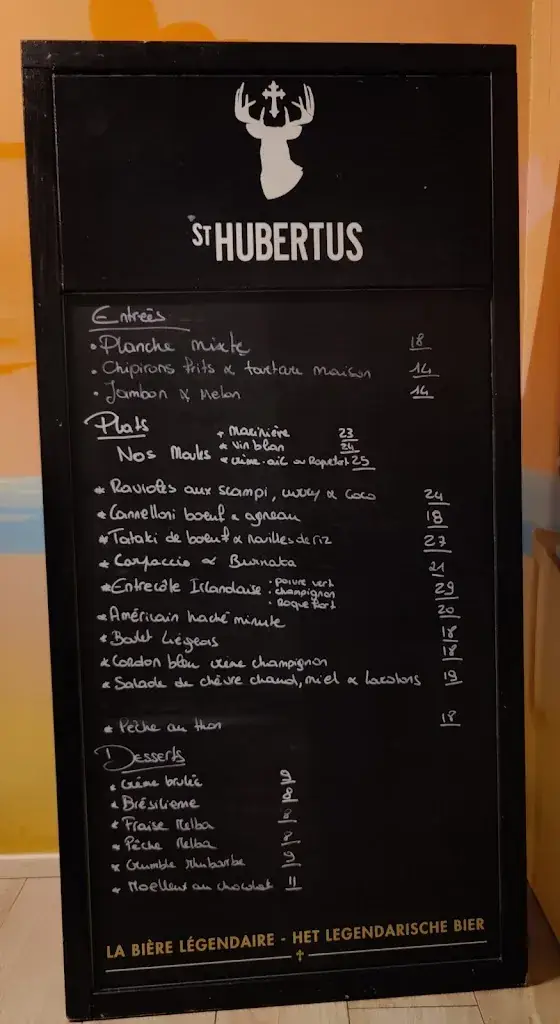 ST HUBERTUS
Entrées
• Planche mixte 18
• Chipirons frits & tartare maison 14
• Jambon & Melon 14
Plats
Nos Moules
* Marinière 23
* Vin blan 24
* crème-ail ou Roquefort 25
* Ravioles aux scampi, curry & coco 24
* Cannelloni boeuf & agneau 18
* Tataki de boeuf & nouilles de riz 27
* Carpaccio & Burrata 21
* Entrecôte Irlandaise 29
• poivre vert
• champignon
• Roquefort
* Américain haché minute 20
* Boulet Liégeois 18
* Cordon bleu crème champignon 18
* Salade de chèvre chaud, miel & lardons 19
* Pêche au thon 18
Desserts
* Crème brulée 9
* Brésilienne 8
* Fraise Melba 8
* Pêche Melba 8
* Crumble rhubarbe 9
* Moelleux au chocolat 11
LA BIÈRE LÉGENDAIRE - HET LEGENDARISCHE BIER